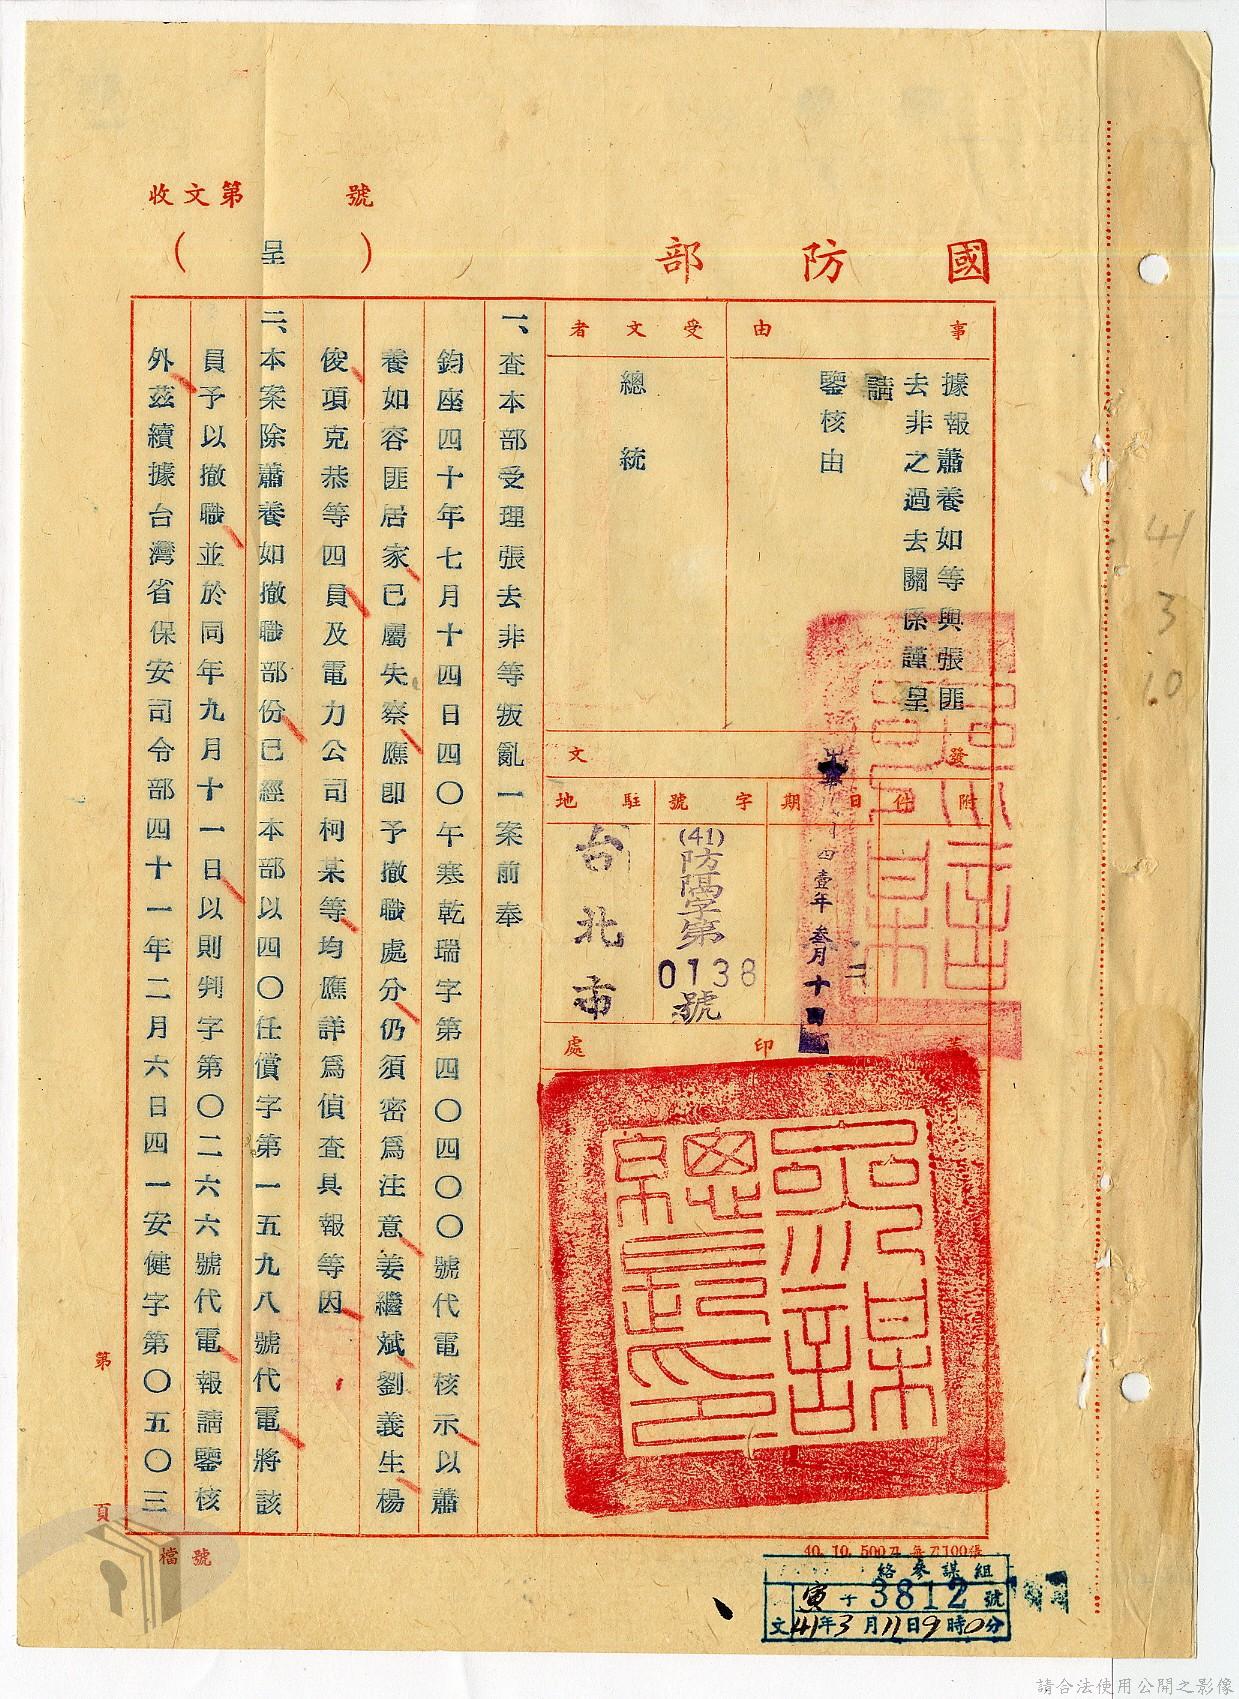 收文第　　　號
國防部
（呈）
事由
據報蕭養如等與張匪
去非之過去關係謹呈
請
鑒核由
受文者
總統
發文
附件
日期
中華民國四壹年叁月十日
字號
(41)防隅字第0138號
駐地
台北市
印處
一、查本部受理張去非等叛亂一案前奉
鈞座四十年七月十四日四〇午寒乾瑞字第四〇四〇〇號代電核示以蕭
養如容匪居家已屬失察應即予撤職處分仍須密為注意姜繼斌劉義生楊
俊項克恭等四員及電力公司柯某等均應詳為偵查具報等因
二、本案除蕭養如撤職部份已經本部以四〇任償字第一五九八號代電將該
員予以撤職並於同年九月十一日以則判字第〇二六六號代電報請鑒核
外茲續據台灣省保安司令部四十一年二月六日四一安健字第〇五〇三
第
頁
檔號
參謀總長印
40. 10. 500刀 每刀100張
參謀組
寅字3812號
文41年3月11日9時0分
41
3
10
請合法使用公開之影像